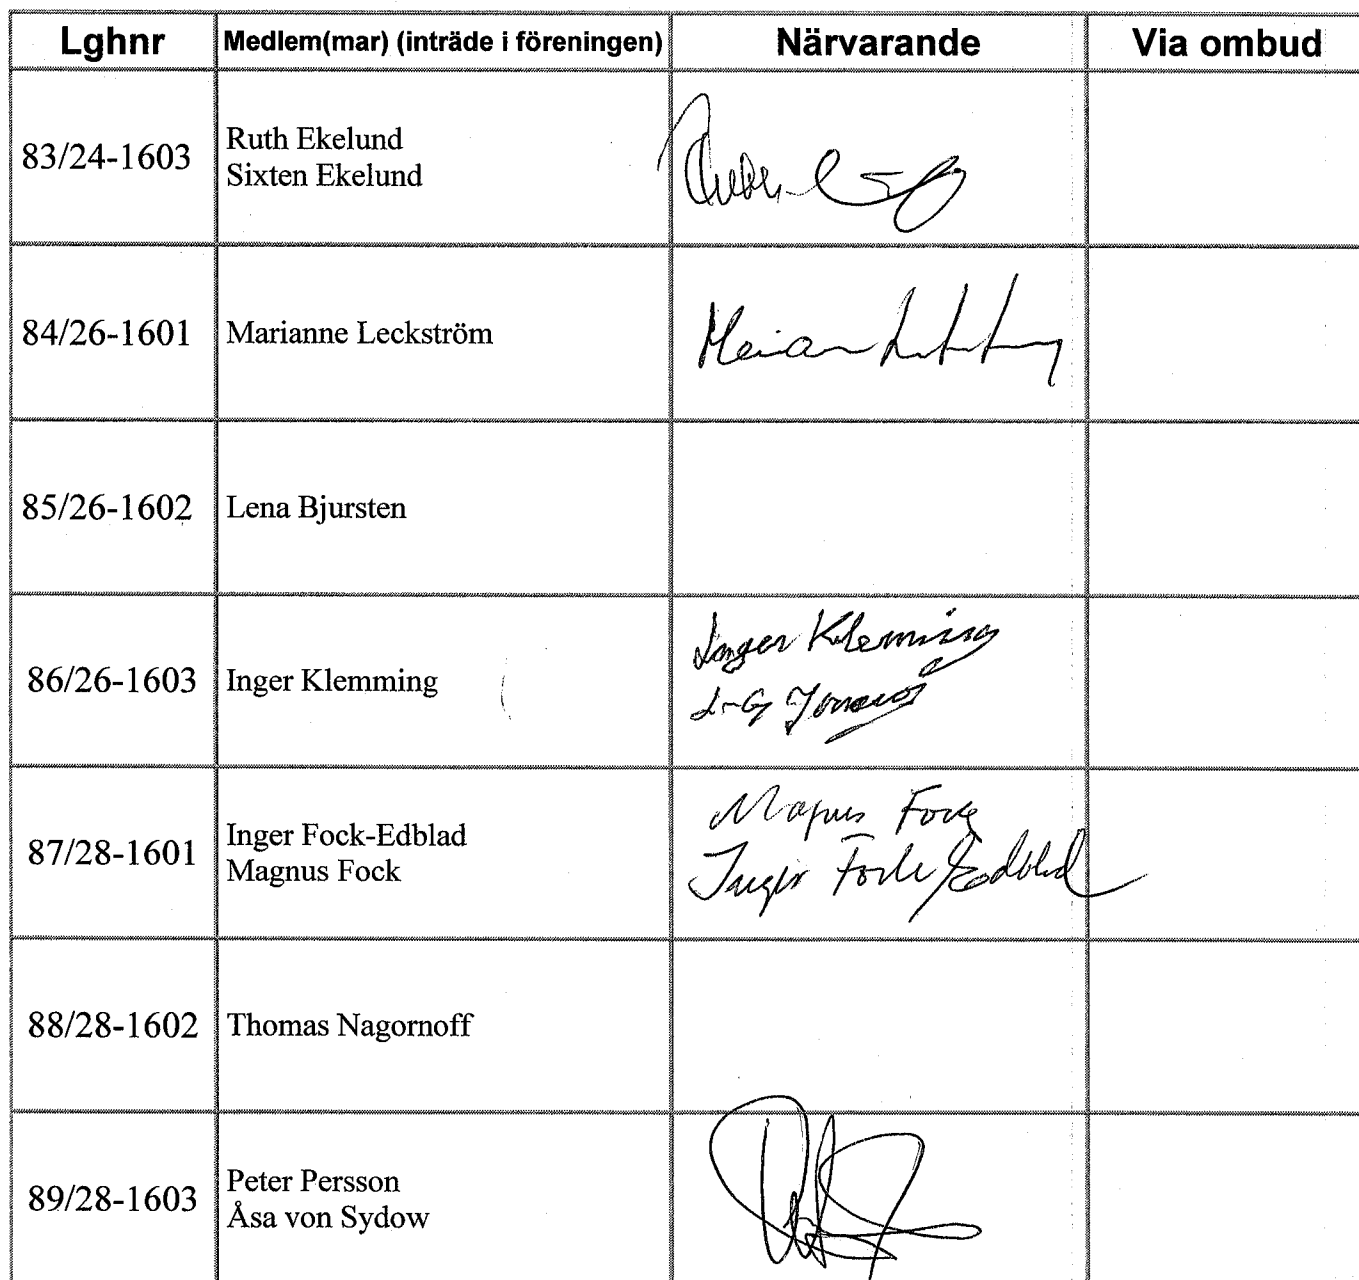 Lghnr Medlem(mar) (inträde i föreningen) Närvarande Via ombud
83/24-1603 Ruth Ekelund
Sixten Ekelund
84/26-1601 Marianne Leckström
85/26-1602 Lena Bjursten
86/26-1603 Inger Klemming Inger Klemming
L-G
87/28-1601 Inger Fock-Edblad Magnus Fock
Magnus Fock Inger Fock/Edblad
88/28-1602 Thomas Nagornoff
89/28-1603 Peter Persson
Åsa von Sydow